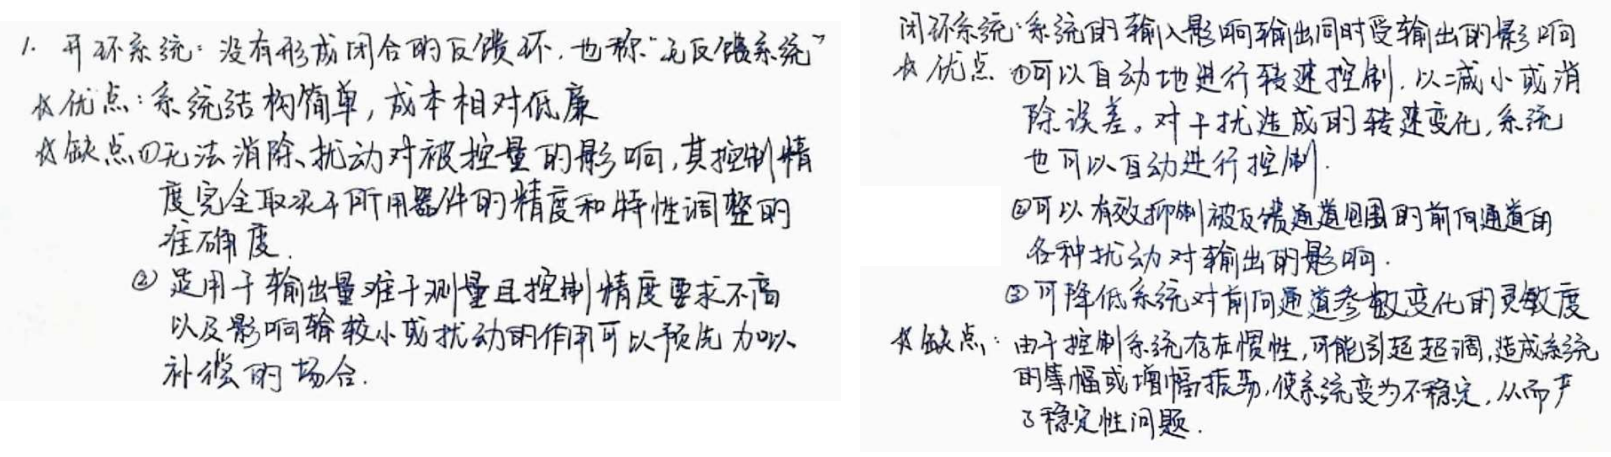 1. 开环系统：没有形成闭合的反馈环，也称“无反馈系统”
优点：系统结构简单，成本相对低廉
缺点①无法消除、扰动对被控量的影响，其控制精
度完全取决于所用器件的精度和特性调整的
准确度.
② 适用于输出量难于测量且控制精度要求不高
以及影响输较小或扰动的作用可以预先加以
补偿的场合.
闭环系统：系统的输入影响输出同时受输出的影响
优点 ①可以自动地进行转速控制，以减小或消
除误差。对干扰造成的转速变化，系统
也可以自动进行控制.
②可以有效抑制被反馈通道包围的前向通道的
各种扰动对输出的影响.
③可降低系统对前向通道参数变化的灵敏度
缺点：由于控制系统存在惯性，可能引起超调，造成系统
的等幅或增幅振荡，使系统变为不稳定，从而产
了稳定性问题.